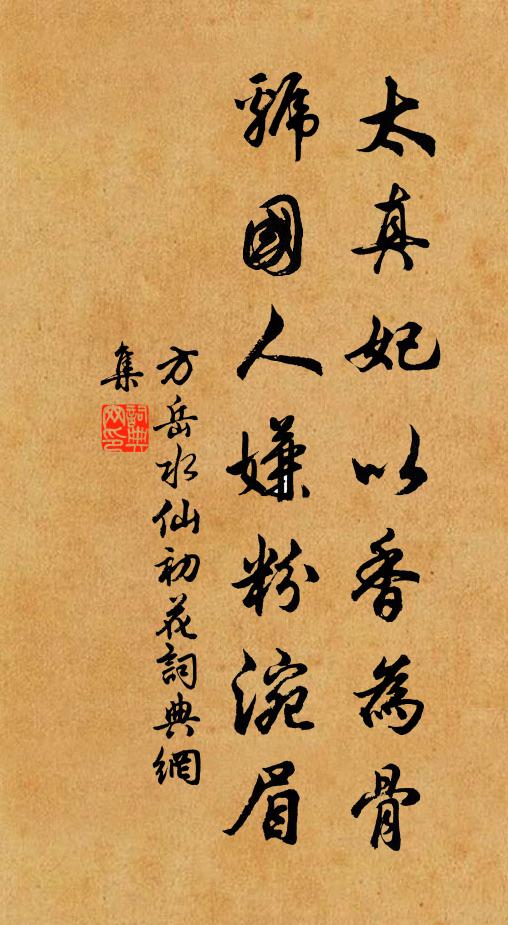 太真妃以香為骨
虢國人嫌粉涴眉
方岳水仙初花詞典網
集
詞典
網印